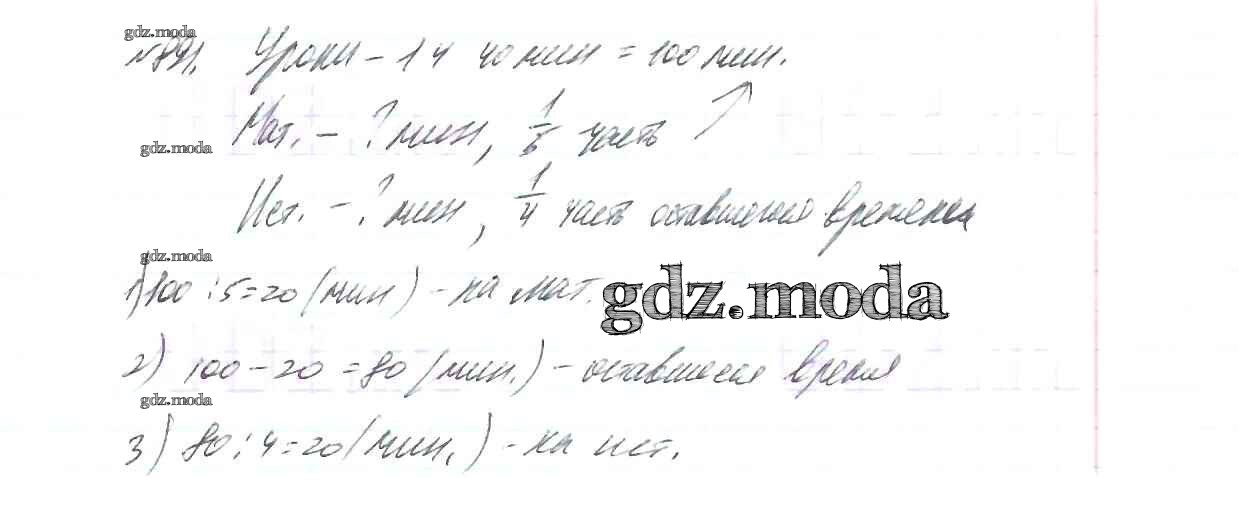 gdz.moda
№891. Уроки – 1 ч 40 мин = 100 мин.
Мат. – ? мин, 1/5 часть
gdz.moda
Ист. – ? мин, 1/4 часть оставшегося времени
gdz.moda
1) 100 : 5 = 20 (мин) – на мат.
gdz.moda
2) 100 – 20 = 80 (мин.) – оставшееся время
gdz.moda
3) 80 : 4 = 20 (мин.) – на ист.